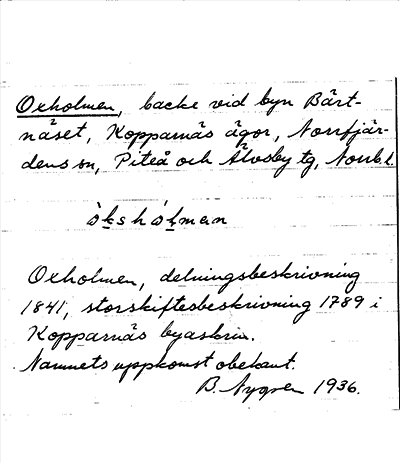 Oxholmen, backe vid byn Bärt-
näset, Kopparnäs ägor, Norrfjär-
dens sn, Piteå och Älvsby tg, Norrb. l.
ò̀k̲s̲hó̀l̲man
Oxholmen, delningsbeskrivning
1841, storskiftesbeskrivning 1789 i
Kopparnäs byaskrin.
Namnets uppkomst obekant.
B. Nygren 1936.